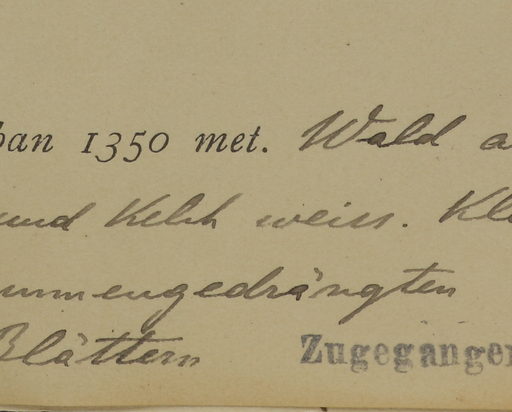 ban 1350 met. Wald a
und Kelch weiss. Kl
ummengedrängten
Blättern
Zugegangen